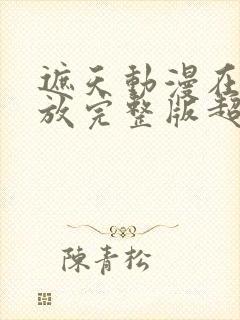 遮天動漫在
放完整版超
陳青松